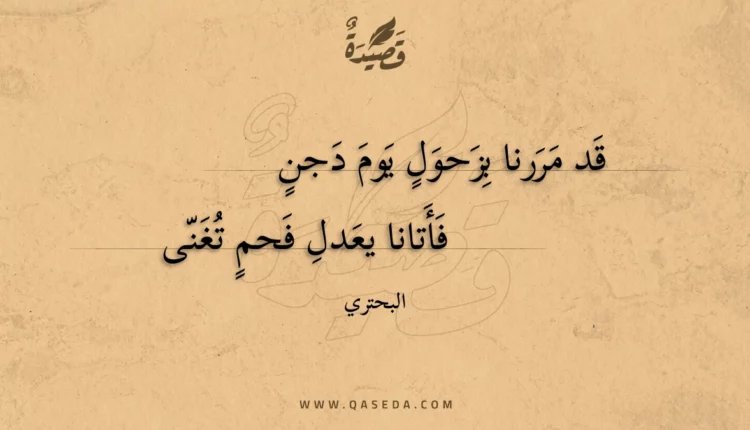 قَصِيْدَةٌ
قَد مَرَرنا بِزَحوَلٍ يَومَ دَجنٍ
فَأَتانا يعَدلِ فَحمٍ تُغَنّى
البحتري
WWW.QASEDA.COM